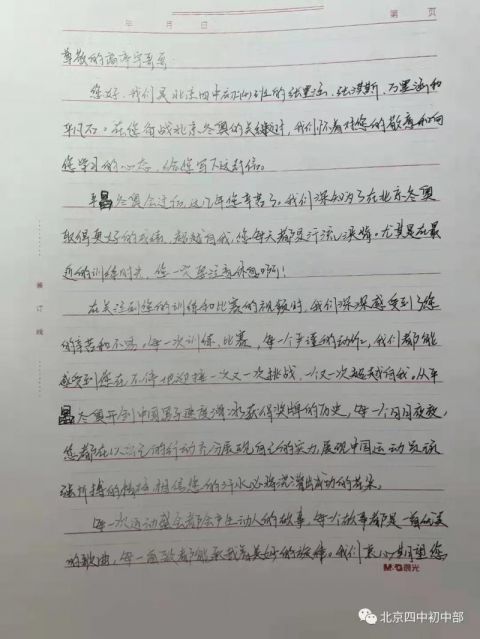 年 月 日 第 页
尊敬的高亭宇哥哥:
您好,我们是北京四中初的班的张
和
平凡石。在您备战北京冬奥的关键时,我们怀着对您的敬意和向
您学习的心态,给您写下这封信。
平昌冬奥会过后,这几年您辛苦了。我们深知为了在北京冬奥
取得更好的成绩,超越自我,您每天都要汗流浃背。尤其是在最
近的训练时光,您一定要注意休息啊!
在关注到您的训练和比赛的视频时,我们深深感受到了您
的辛苦和不易。每一次训练、比赛,每一个严谨的动作,我们都能
感受到您在不停地迎接一次又一次挑战,一次一次超越自我。从平
昌冬奥开创中国男子速度滑冰获得奖牌的历史,每一个日日夜夜,
您都在以 的行动充分展现自己的实力,展现中国运动员
拼搏的 相信您的汗水必将浇灌出成功的花朵。
每一次运动盛会都会产生动人的故事,每一个故事都是一首优美
的歌曲,每一首歌都能 着美好的旋律。我们真心期望您
装订线
M&G晨光
北京四中初中部